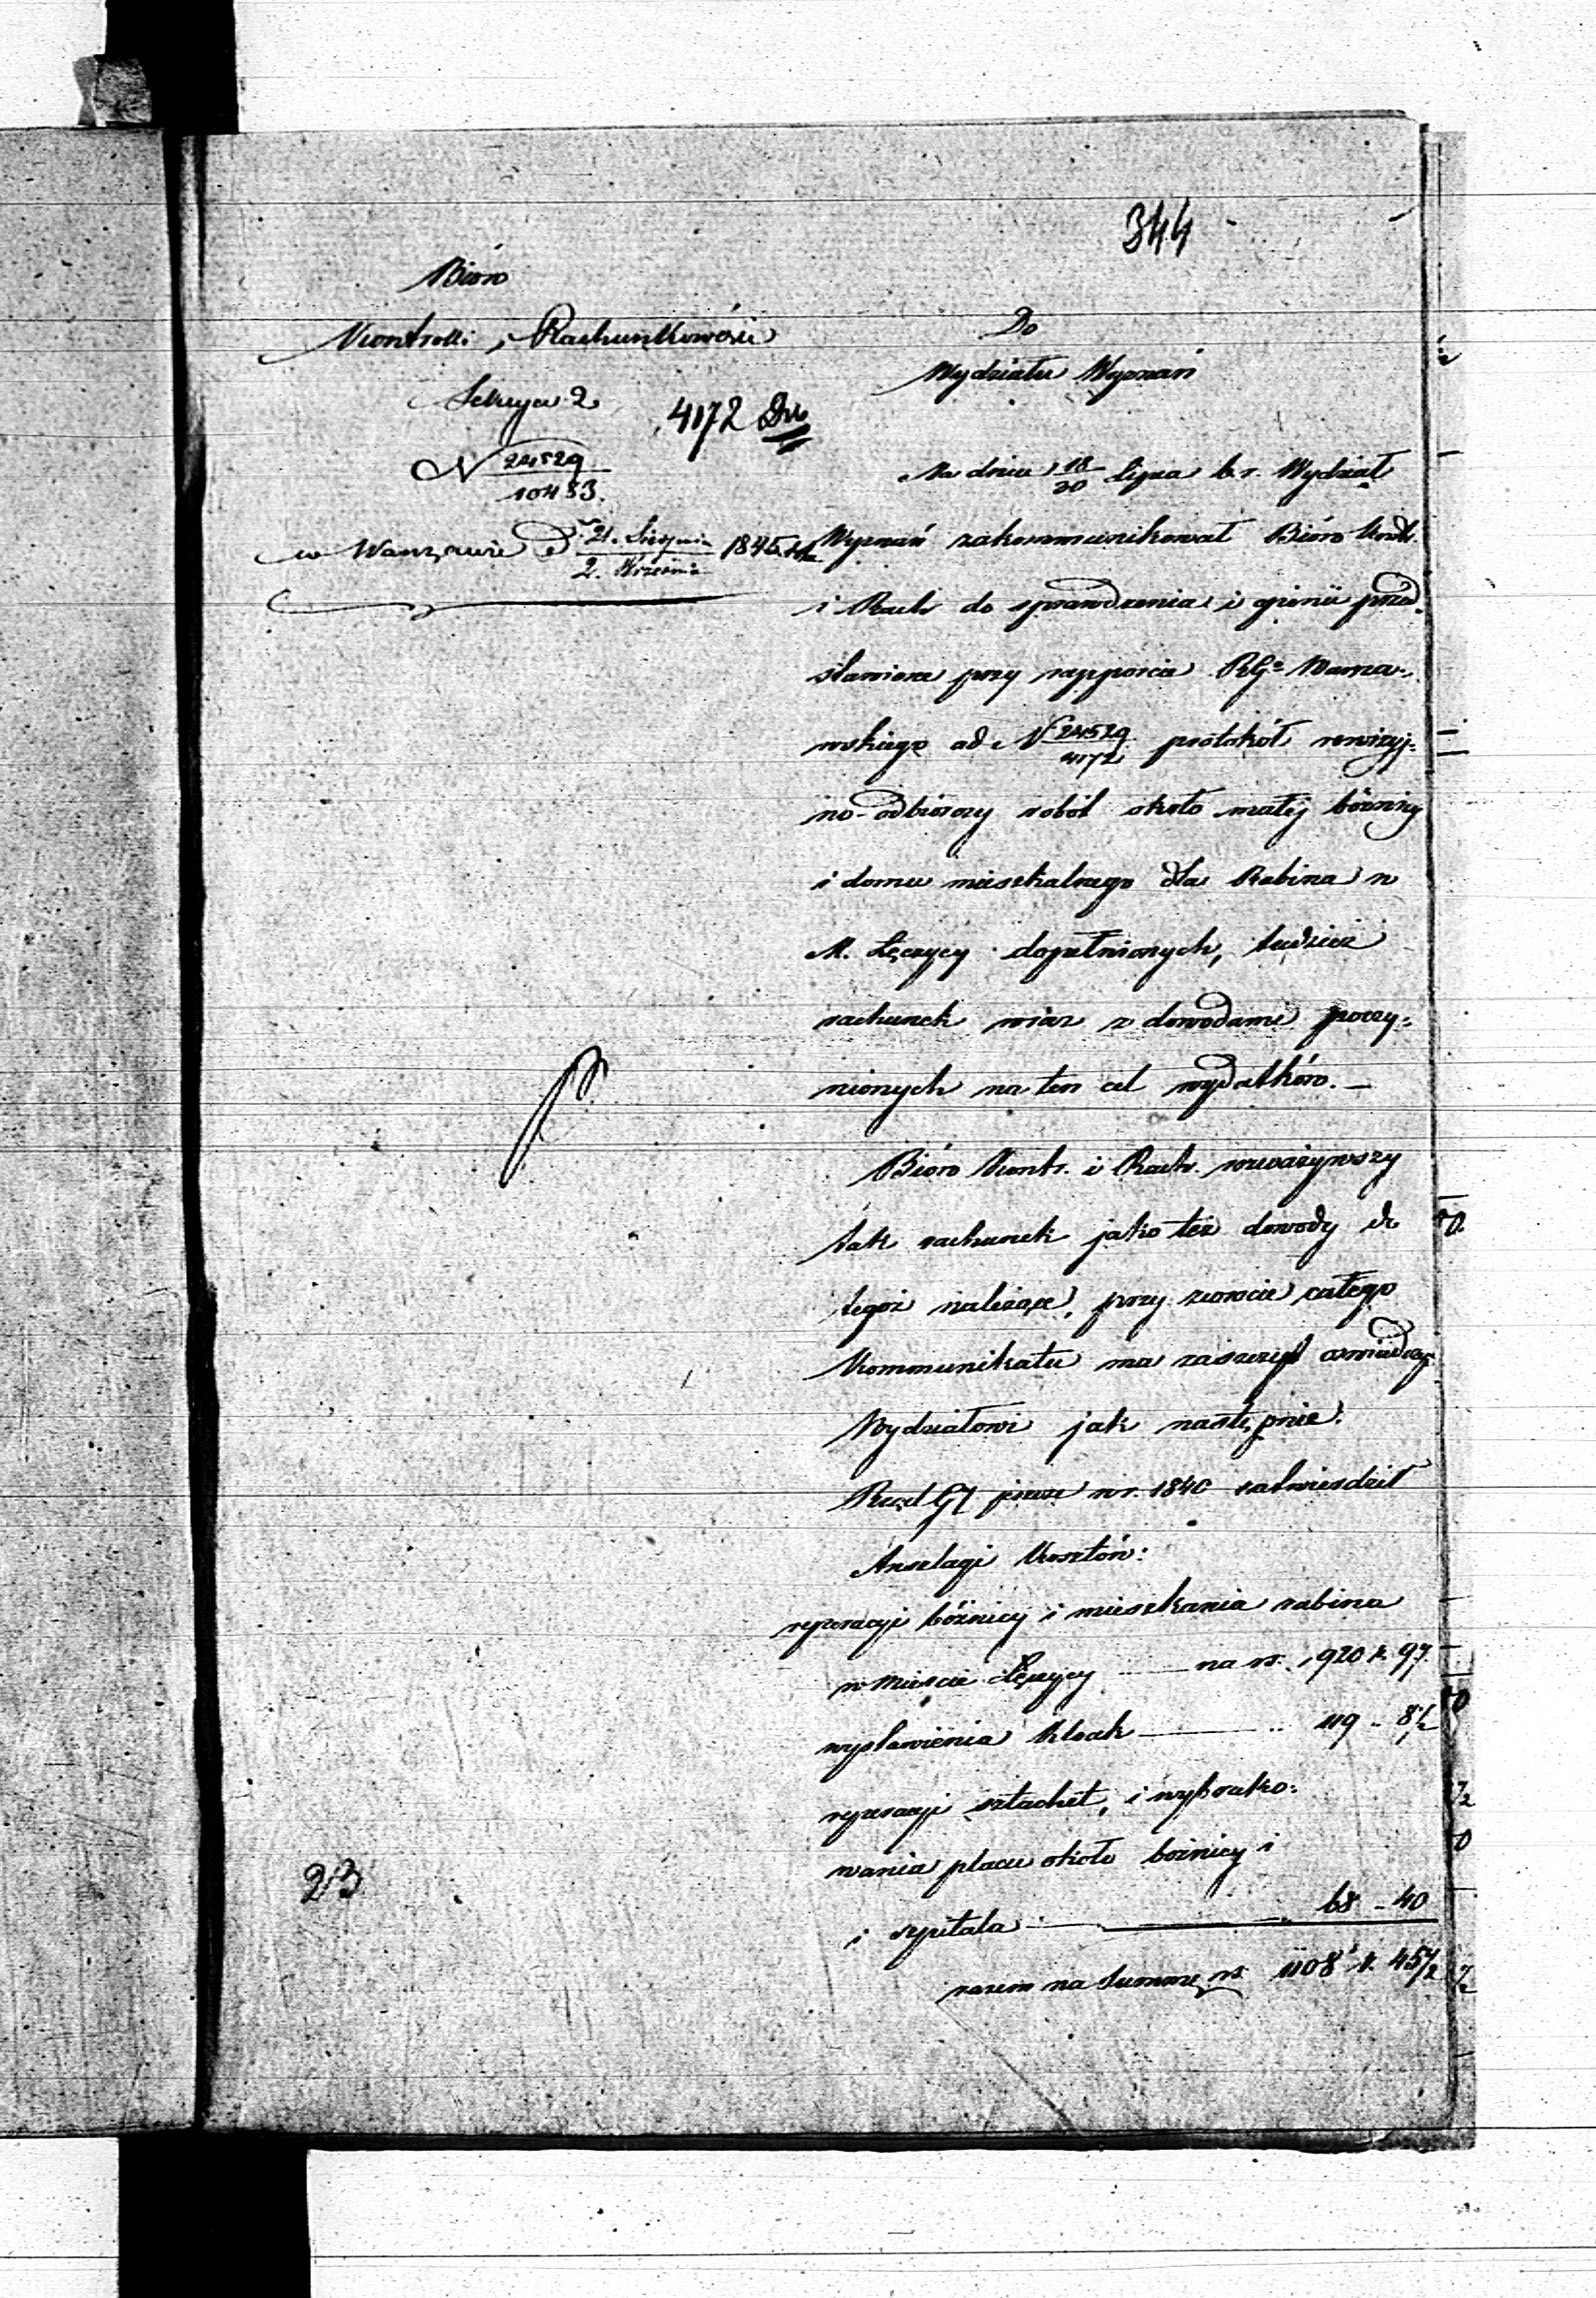 344
Bióro
Kontrolli i Rachunkowości
Sekcya 2
4172
N 24529/10453.
w Warszawie d. 21. Sierpnia/2. Września 1845 r.
Do
Wydziału Wyznań
Na dniu 18/30 Lipca b. r. Wydział
Wyznań zakommunikował Bióru Kontr.
i Rach do sprawdzenia i opinii przed
stawione przy rapporcie RGo Warsza-
wskiego ad N 24529/4172 protokół rewizyj-
no-odbiorczy robót około małej bóżnicy
i domu mieszkalnego dla Rabina w
M. Łęczycy dopełnionych, tudzież
rachunek wraz z dowodami poczy-
nionych na ten cel wydatków. —
Bióro Kontr. i Rach. rozważywszy
tak rachunek jako też dowody do
tegoż należące, przy zwrocie całego
Kommunikatu ma zaszczyt oświadczyć
Wydziałowi jak następnie:
Rząd Gl jeszcze w r. 1840 zatwierdził
Anszlagi Kosztów:
reperacyi bóżnicy i mieszkania rabina
w Mieście Łęczycy — na rs. 920 k. 97
wystawienia kloak — " 119 " 8 1/2
reperacyi sztachet, i wybruko-
wania placu około bożnicy i
i szpitala — 68 " 40
razem na Summę rs. 1108 k. 45 1/2
23